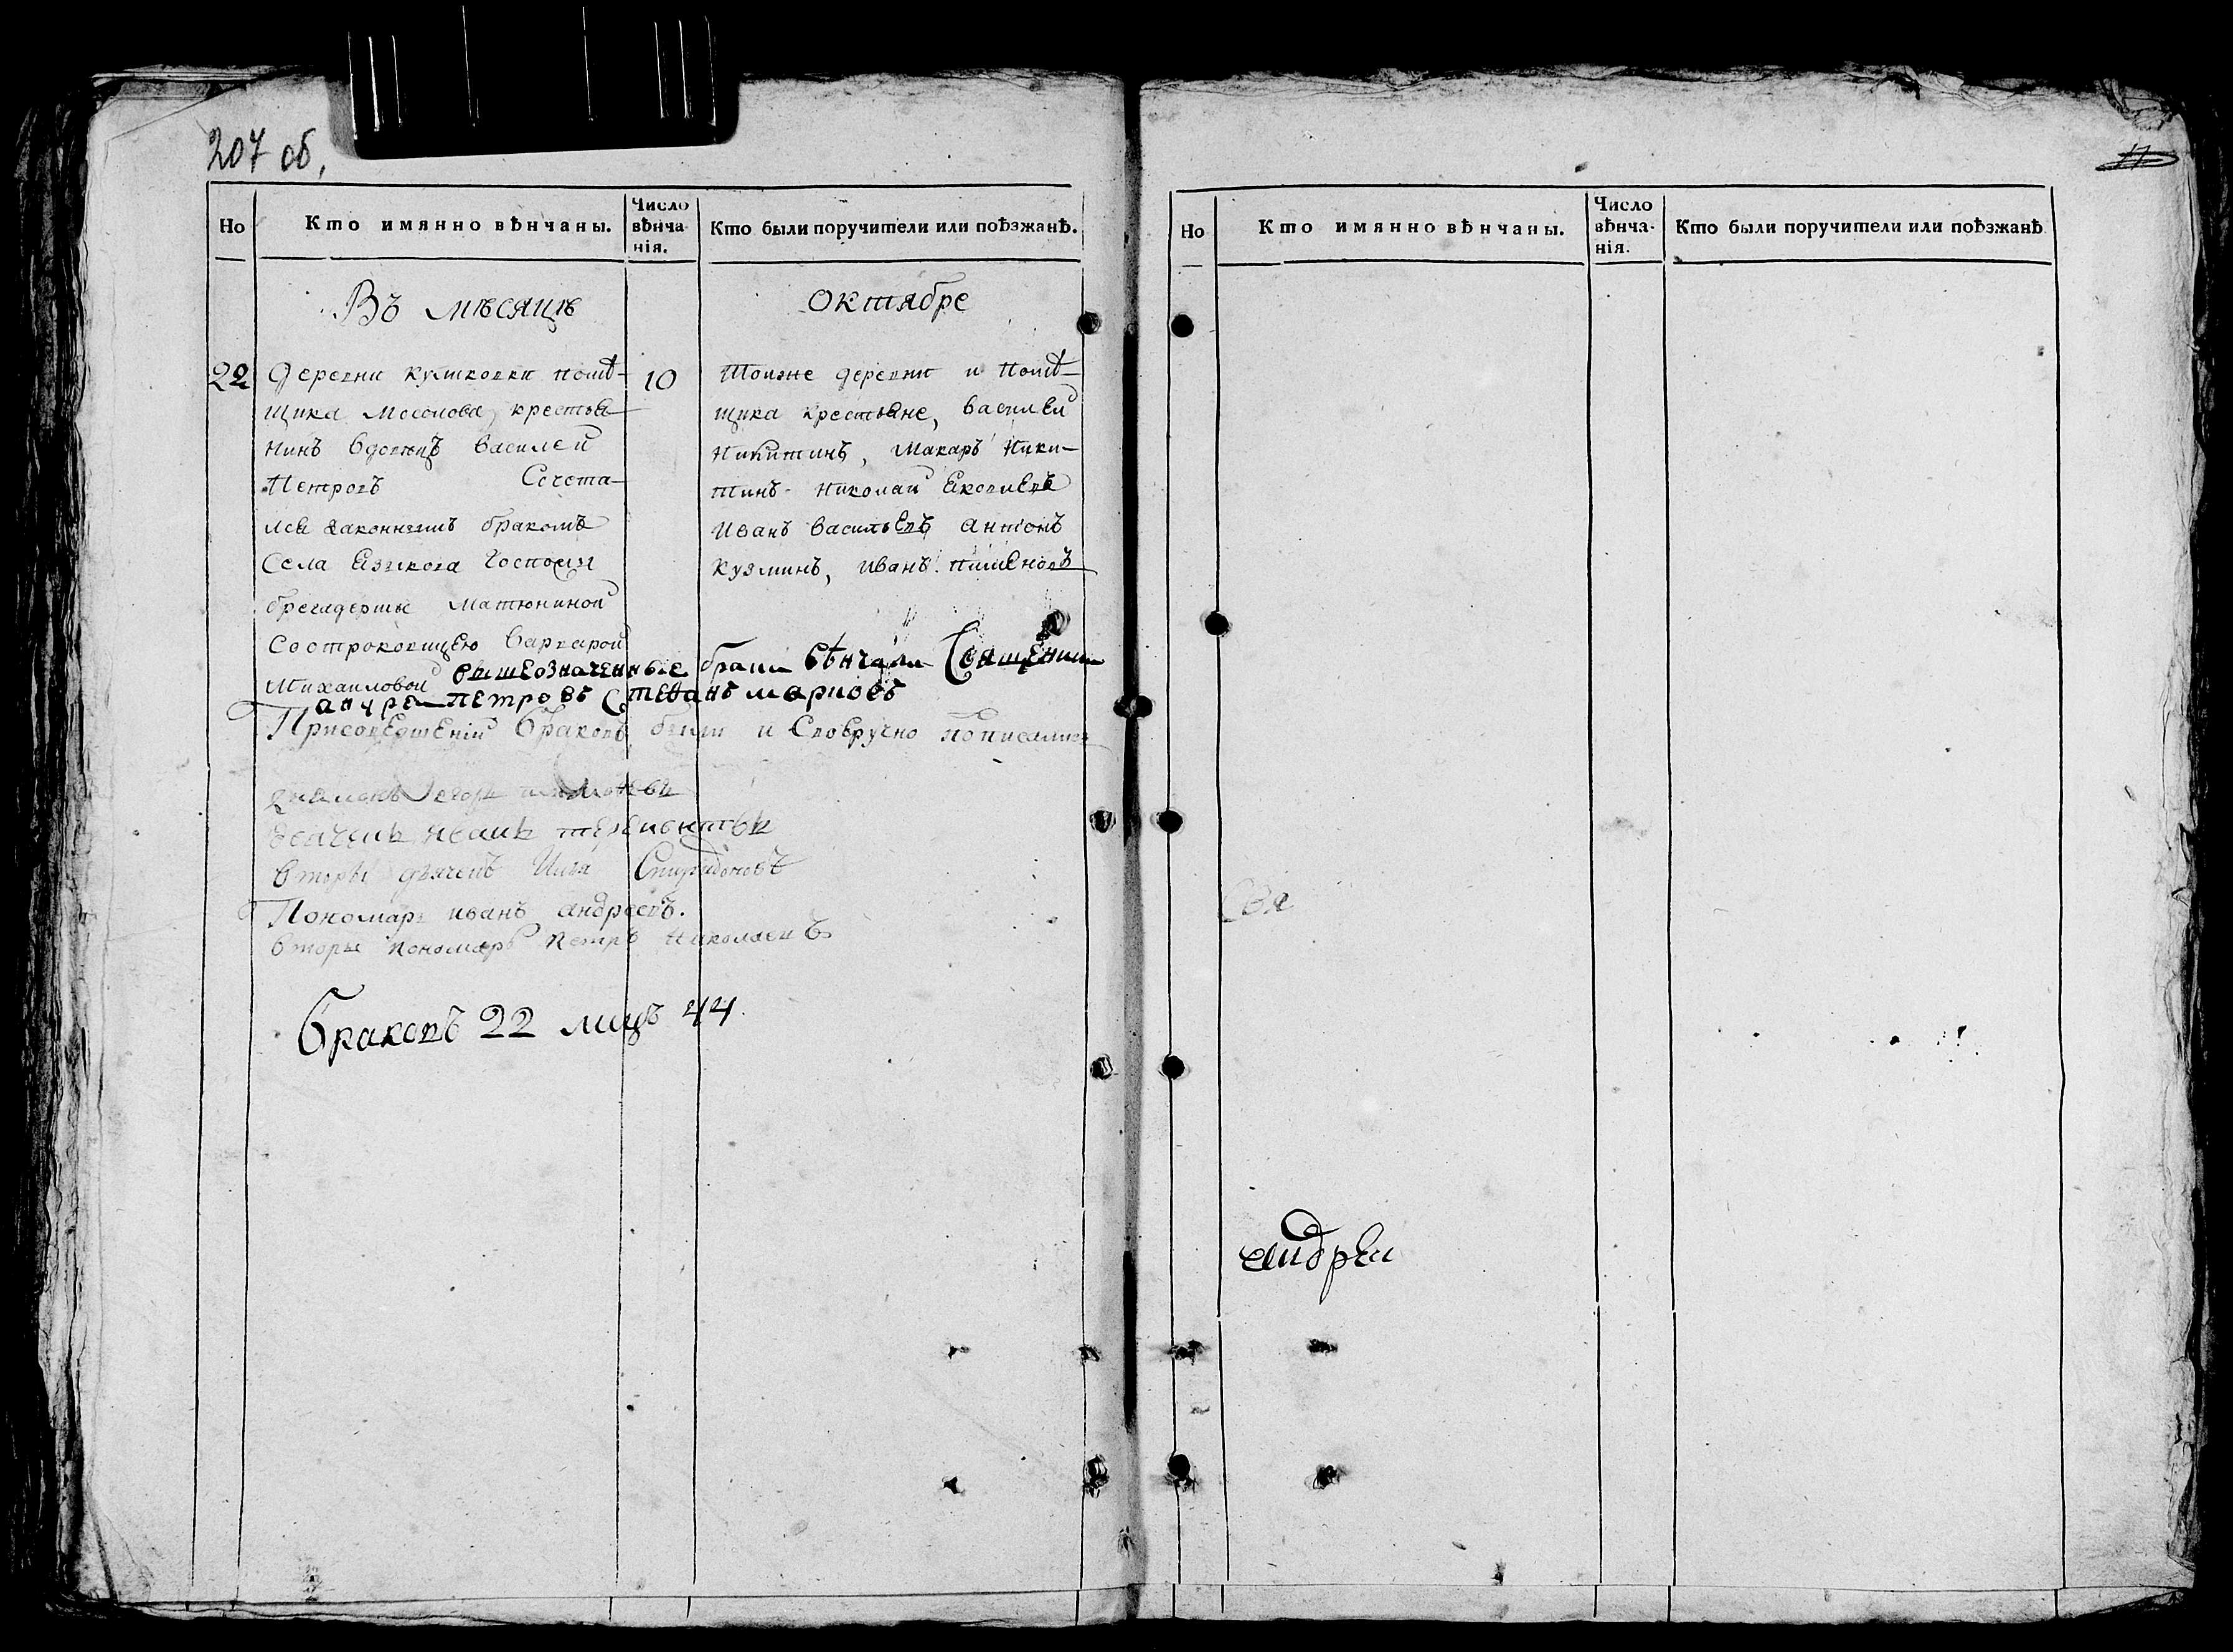 207 об.
Но
Кто имянно вѣнчаны.
Число вѣнчанія.
Кто были поручители или поѣзжанѣ.
Въ мѣсяцѣ
октябре
22
деревни кулшковки помѣ-
щика Мосолова, крестья-
нинъ вдовецъ василей
Петровъ Сочета-
лся законнымъ бракомъ
села Языкова Госпожи
брегадерши Матюниной
Состроковицею варварой
Михаиловой
10
Тойже деревни и помѣ-
щика крестьяне, василей
Никитинъ, Макаръ Ники-
тинъ Николай Яковлевъ
Иванъ васильевъ антонъ
кузминъ, иванъ пименовъ
вышеозначенные браки вѣнчали Священики
андрей петровъ Стефанъ марковъ
При соведшеніи браковъ были и своеручно пописались
иванъ терентьевъ
вторы дьячекъ Илья Спиридоновъ
Пономарь иванъ андреевъ.
вторы пономарь петръ николаевъ
браковъ 22 лицъ 44.
11
Но
Кто имянно вѣнчаны.
Число вѣнчанія.
Кто были поручители или поѣзжанѣ
Свя
андреи